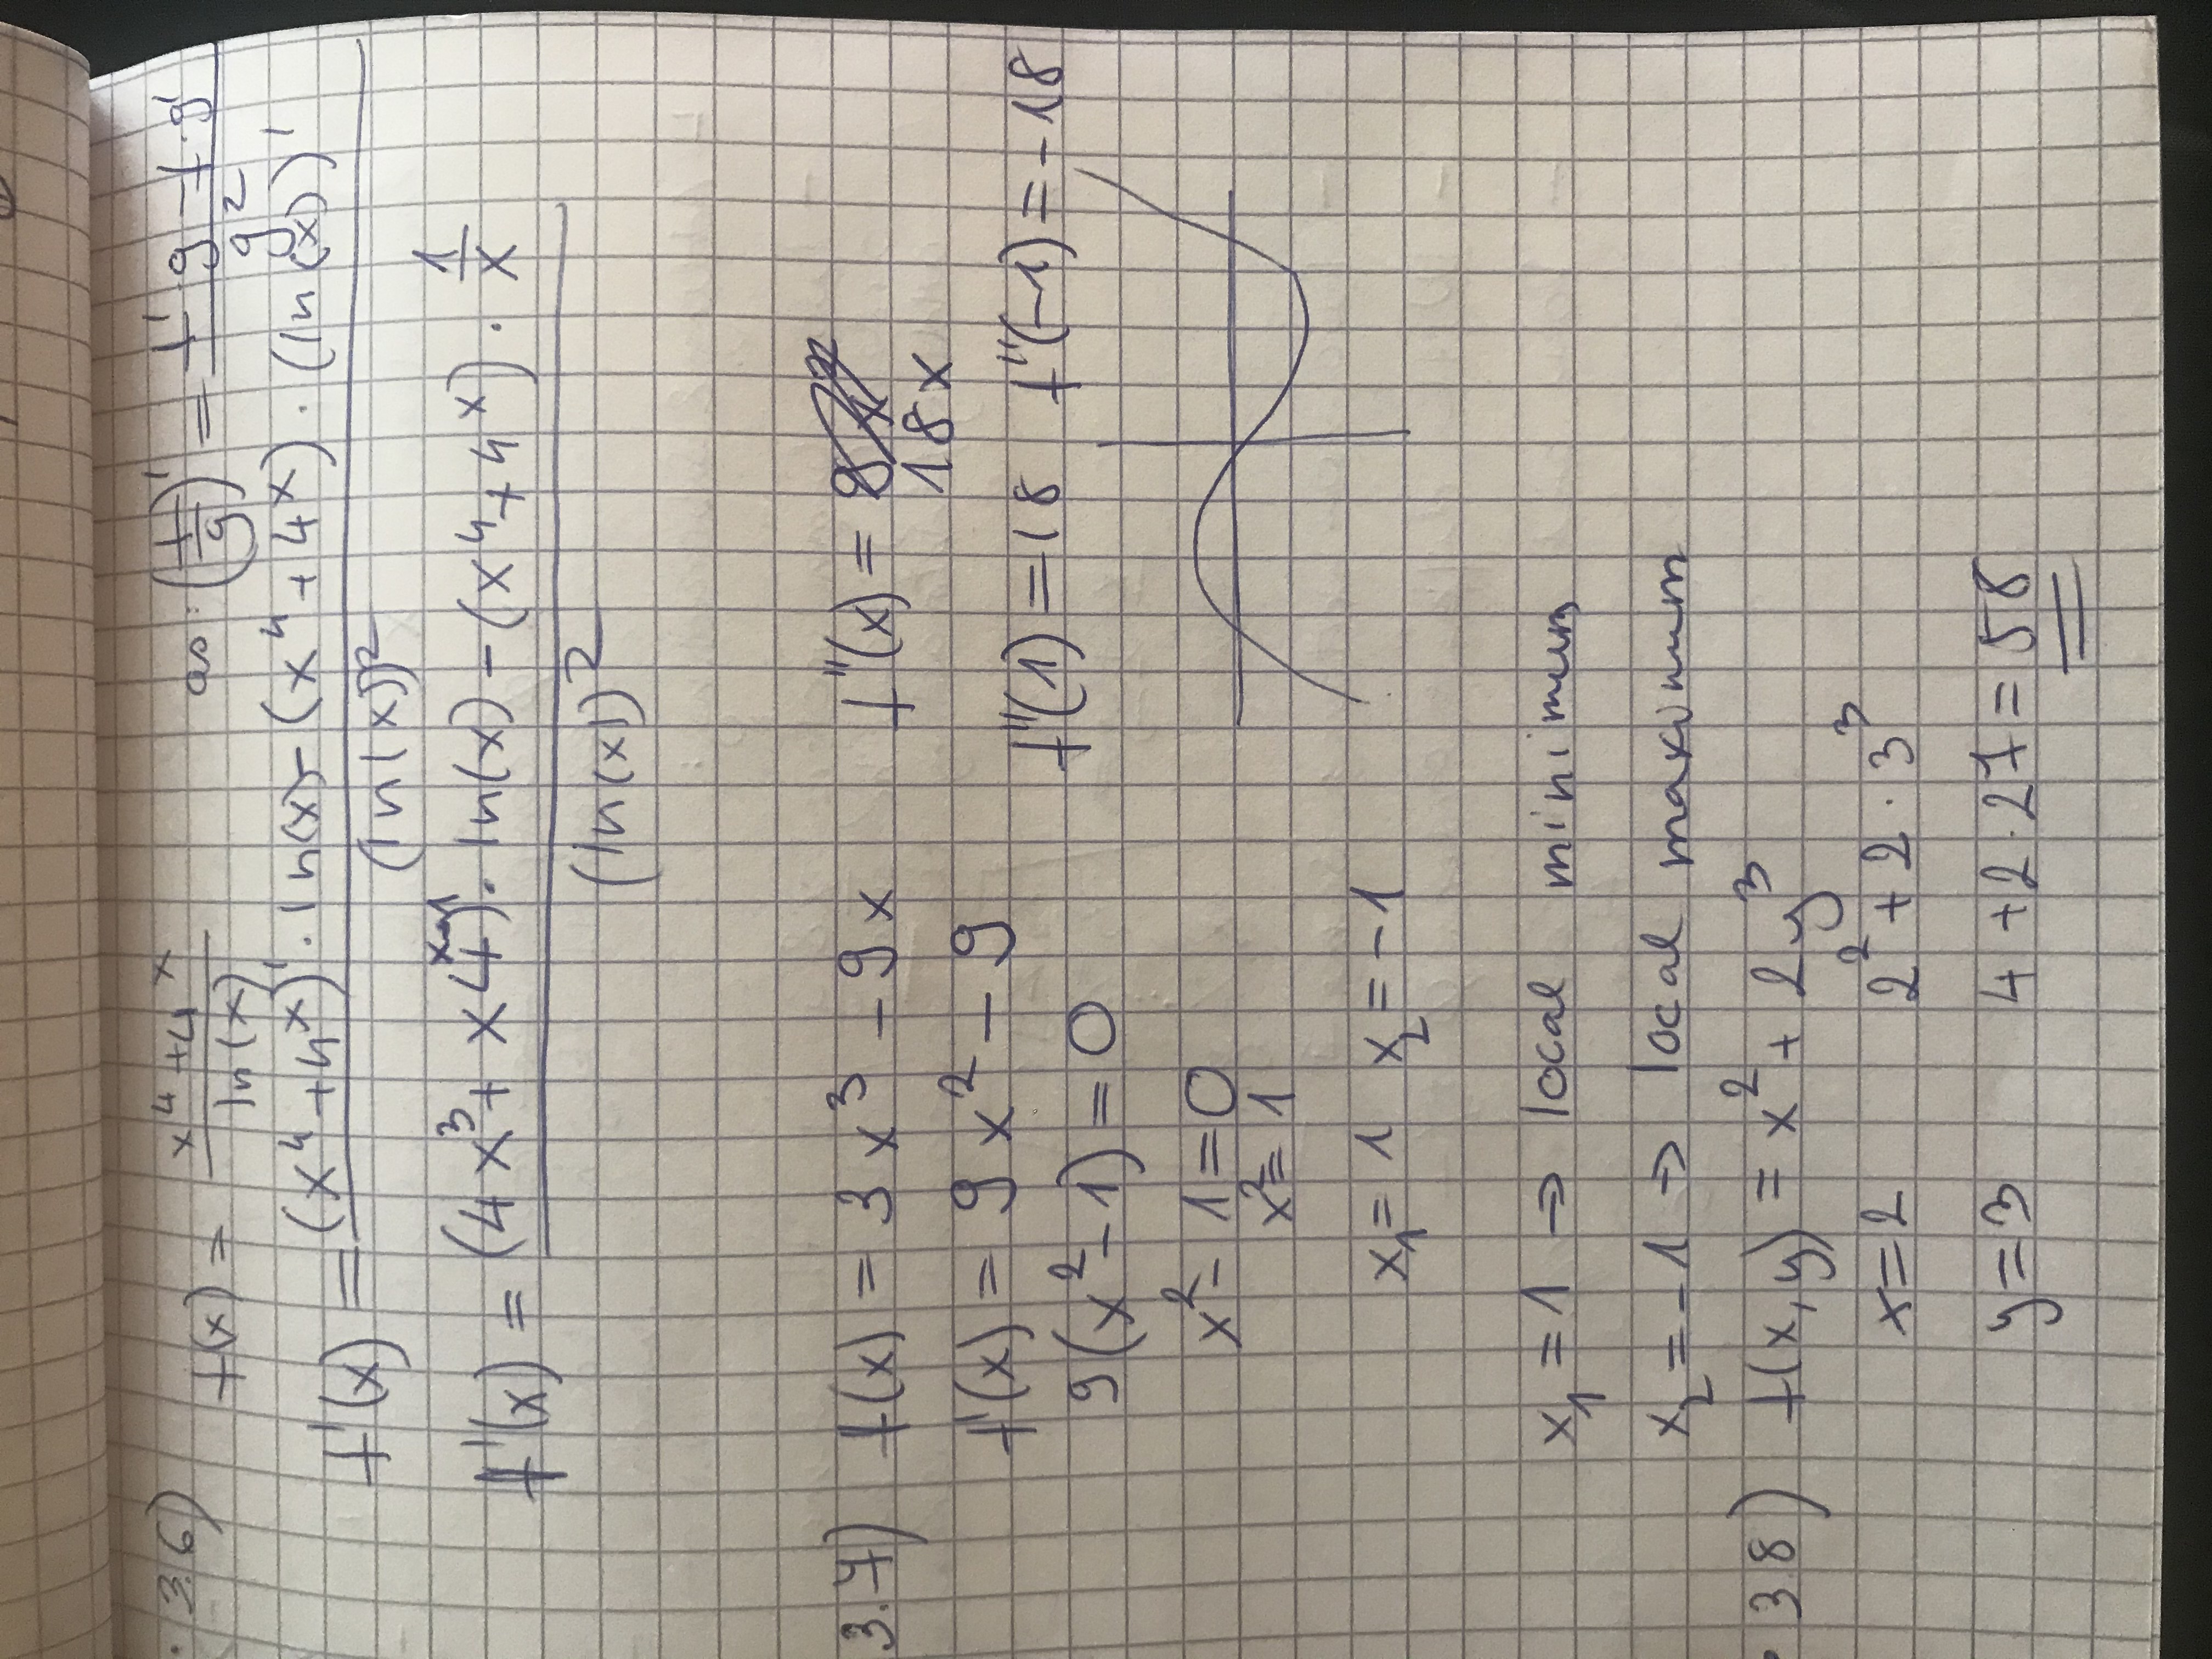 3.6) f(x) = (x^4 + 4^x)/(ln(x)) as: (f/g)' = (f' · g - f · g')/(g^2)
f'(x) = ((x^4 + 4^x)' · ln(x) - (x^4 + 4^x) · (ln(x))')/((ln(x))^2)
f'(x) = ((4x^3 + x4^(x-1)) · ln(x) - (x^4 + 4^x) · 1/x)/((ln(x))^2)
3.7) f(x) = 3x^3 - 9x
f'(x) = 9x^2 - 9
9(x^2 - 1) = 0
x^2 - 1 = 0
x^2 = 1
x_1 = 1 x_2 = -1
f''(x) =
18x
f''(1) = 18 f''(-1) = -18
x_1 = 1 → local minimum
x_2 = -1 → local maximum
3.8) f(x, y) = x^2 + 2y^3
x = 2 2^2 + 2 · 3^3
y = 3 4 + 2 · 27 = 58